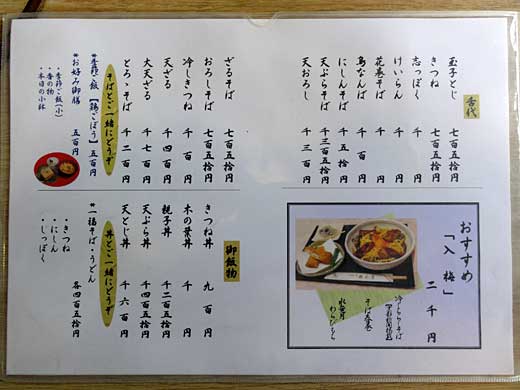 お代
玉子とじ 七百五拾円
きつね 七百五拾円
志っぽく 千円
けいらん 千円
花巻そば 千円
鳥なんば 千百円
にしんそば 千五拾円
天ぷらそば 千三百五拾円
天おろし 千三百円
ざるそば 七百五拾円
おろしそば 七百五拾円
冷しきつね 千百円
天ざる 千四百円
大天ざる 千七百円
とろゝそば 千二百円
そばとご一緒にどうぞ
*季節ご飯【鶏ごぼう】 五百円
*お好み御膳 五百円
・季節ご飯(小)
・香の物
・本日の小鉢
おすすめ
「入梅」 二千円
そば寿し
水無月
わらびもち
御飯物
きつね丼 九百円
木の葉丼 千円
親子丼 千二百五拾円
天ぷら丼 千四百五拾円
天とじ丼 千六百円
丼とご一緒にどうぞ
*一福そば・うどん 各四百五拾円
・きつね
・にしん
・しっぽく